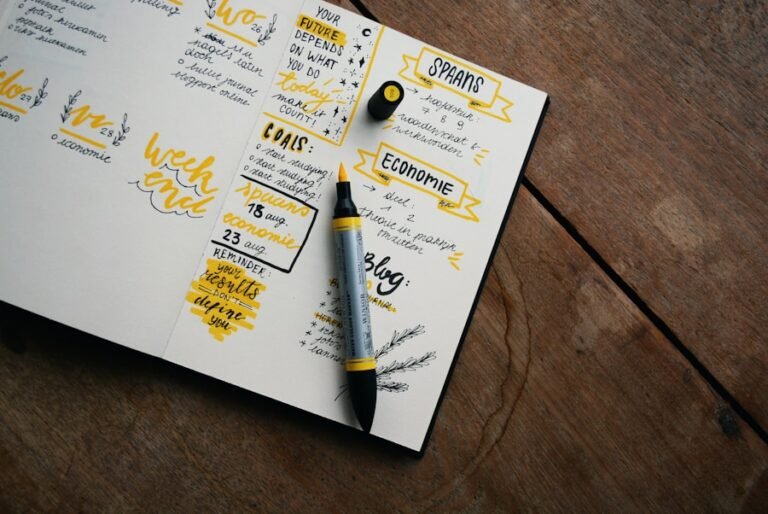 journal
foto's bewerken
wo
26
nagels laten
doen
bullet journal
blogpost online
27
vr
28
economie
week
end
YOUR
FUTURE
DEPENDS
ON WHAT
YOU DO
today
make it
COUNT!
GOALS:
start studying!
start studying!
start studying!
spaans
18 aug.
economie
23 aug.
REMINDER:
your
results
DON'T
define
you
SPAANS
hoofdstuk:
7 8 9
woordenschat &
werkwoorden
ECONOMIE
deel:
1 2
theorie in praktijk
omzetten
Blog: